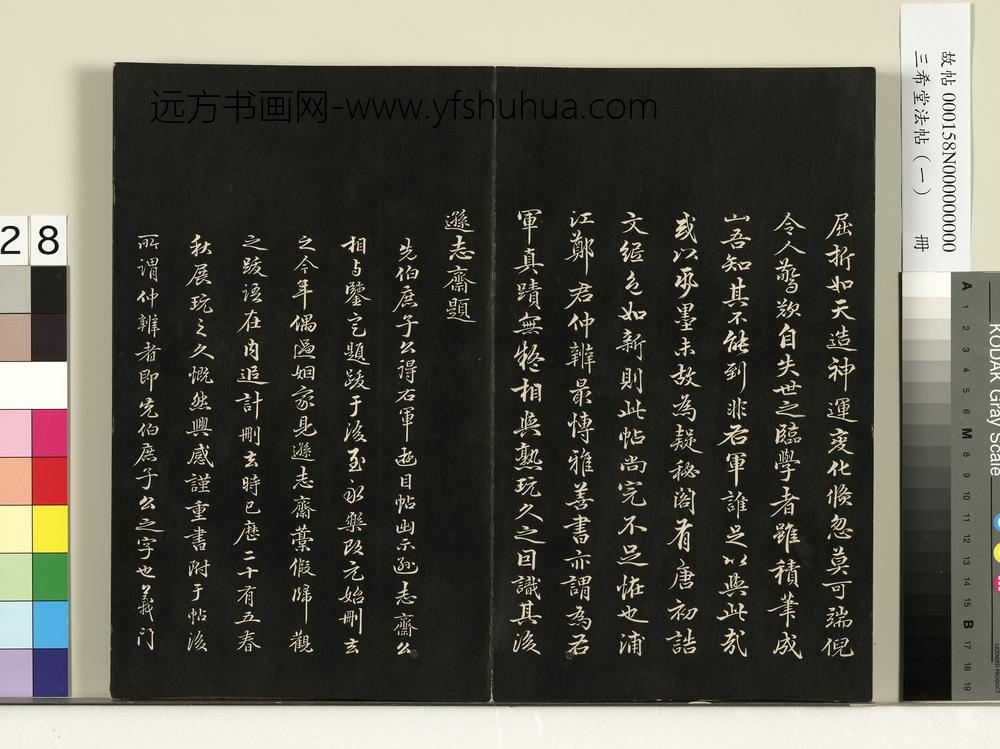 屈折如天造神運变化倏忽莫可端倪
令人驚歎自失世之臨學者雖積筆成
山吾知其不能到非右軍誰足以與此哉
或以承墨未故為疑秘阁有唐初詰
文纸色如新則此帖尚完不足恠也浦
江鄭君仲辨最愽雅善書亦謂為右
軍真蹟無疑相與熟玩久之因識其後
遜志齋題
先伯庶子公得右軍逰目帖出示遜志齋公
相与鑒定題跋于後至永樂改元始刪去
之今年偶過姻家見遜志齋藁假歸觀
之跋语在内追計刪去時已歷二十有五春
秋展玩之久慨然興感謹重書附于帖後
所谓仲辨者即先伯庶子公之字也義门
远方书画网-www.yfshuhua.com
故帖 000158N000000000
三希堂法帖（一） 冊
28
KODAK Gray Scale
A 1 2 3 4 5 6 M 8 9 10 11 12 13 14 15 B 17 18 19